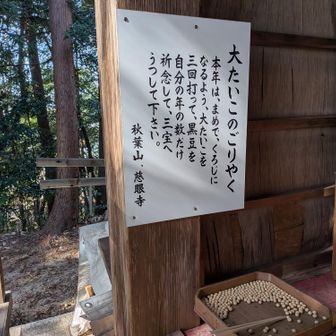 大たいこのごりやく
本年は、まめで、くろじに
なるよう、大たいこを
三回打って、黒豆を
自分の年の数だけ
祈念して、三宝へ
うつして下さい。
秋葉山・慈眼寺